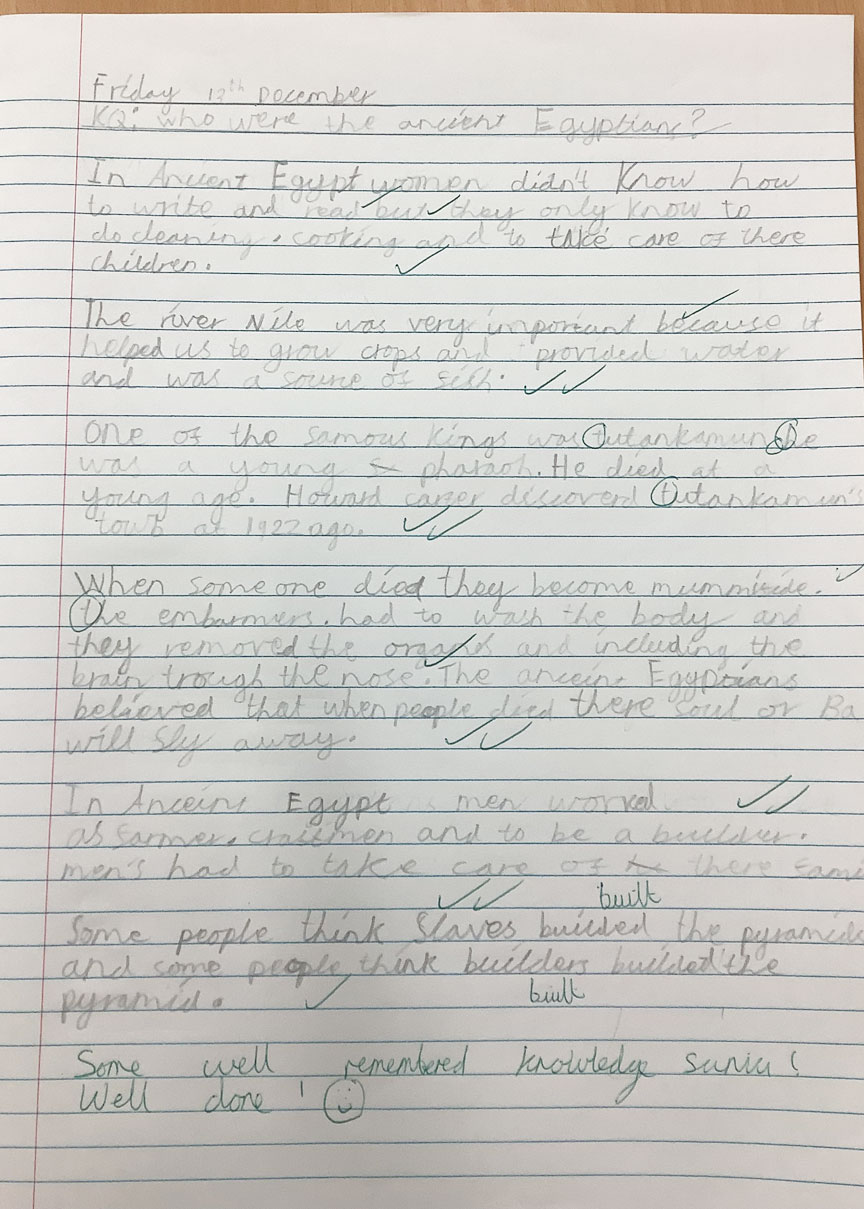 Friday 13th December
KQ: who were the ancient Egyptians?
In Ancient Egypt women didn't know how
to write and read but they only know to
do cleaning, cooking and to take care of there
children.
The river Nile was very important because it
helped us to grow crops and provided water
and was a sourse of fish.
One of the famous kings was tutankamun. he
was a young pharaoh. He died at a
young age. Howard carter discoverd tutankamun's
tomb at 1922 ago.
When someone died they become mummified.
the embarmers. had to wash the body and
they removed the organs and including the
brain trough the nose. The ancient Egyptians
believed that when people died there soul or Ba
will fly away.
In Anceint Egypt men worked
as farmer, craftmen and to be a builder.
men's had to take care of there fami
built
Some people think Slaves builded the pyramids
and some people think builders builded the
pyramid. built
Some well remembered knowledge
Well done!